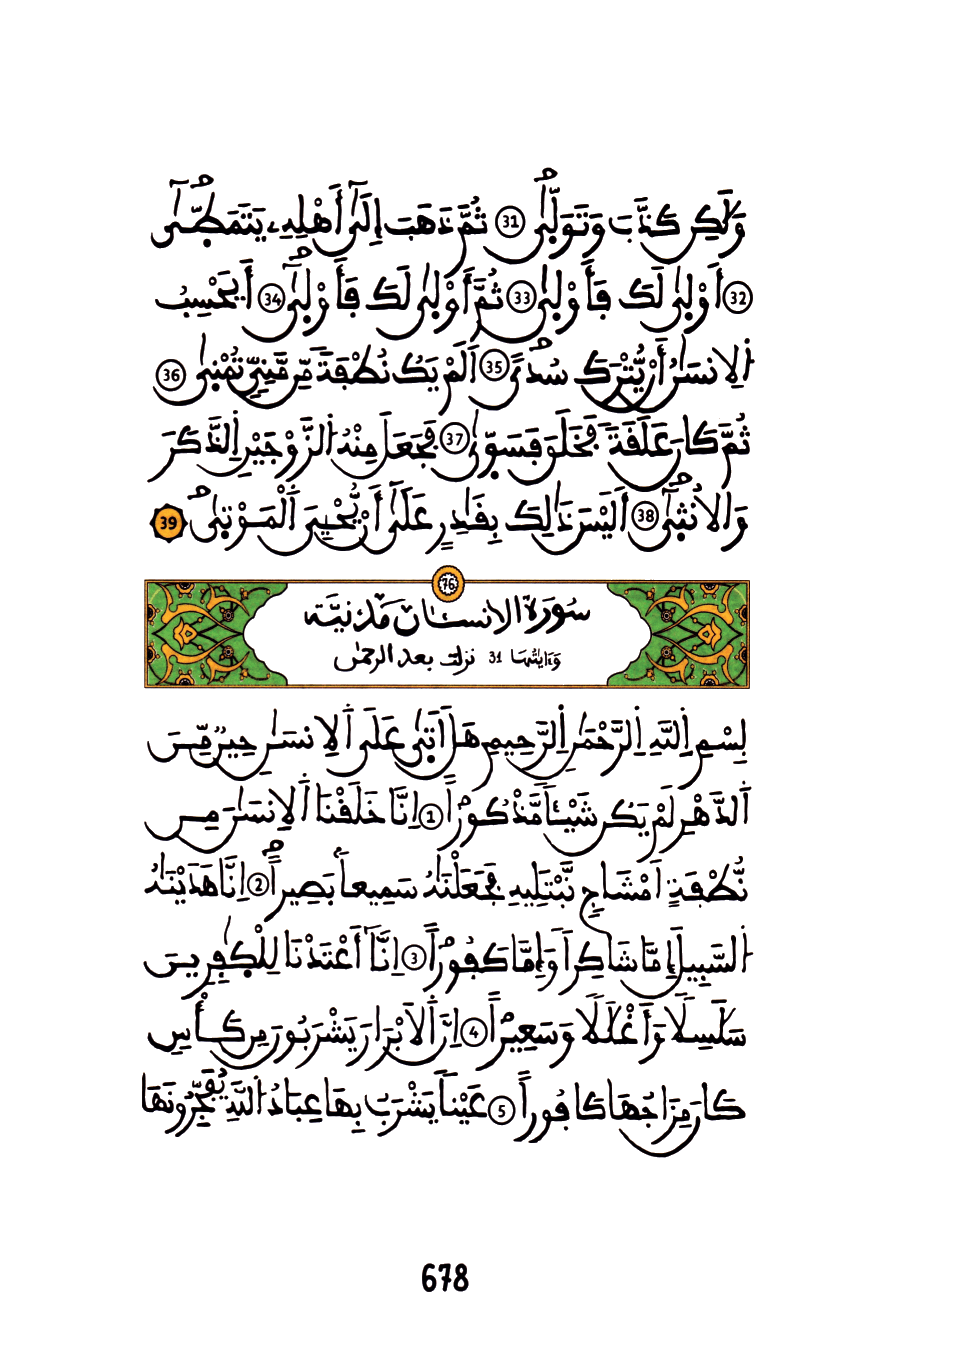 وَلَٰكِن كَذَّبَ وَتَوَلَّىٰ 31 ثُمَّ ذَهَبَ إِلَىٰٓ أَهْلِهِۦ يَتَمَطَّىٰٓ
32 أَوْلَىٰ لَكَ فَأَوْلَىٰ 33 ثُمَّ أَوْلَىٰ لَكَ فَأَوْلَىٰٓ 34 أَيَحْسِبُ
اَ۬لِانسَٰنُ أَنْ يُّتْرَكَ سُدىًۖ 35 اَلَمْ يَكُ نُطْفَةٗ مِّن مَّنِيّٖ تُمْنَىٰ 36
ثُمَّ كَانَ عَلَقَةٗ فَخَلَقَ فَسَوَّىٰ 37 فَجَعَلَ مِنْهُ اُ۬لزَّوْجَيْنِ اِ۬لذَّكَرَ
وَالُانثَىٰٓۖ 38 أَلَيْسَ ذَٰلِكَ بِقَٰدِرٍ عَلَىٰٓ أَنْ يُّحْـِۧيَ اَ۬لْمَوْتَىٰۖ 39
76
سُورَةُ الانسان مَدَنِيَّة
وَءَايَٰتُهَا 31 نزلت بعد الرحمٰن
بِسْمِ اِ۬للَّهِ اِ۬لرَّحْمَٰنِ اِ۬لرَّحِيمِ هَلَ اَتَىٰ عَلَى اَ۬لِانسَٰنِ حِينٌ مِّنَ
اَ۬لدَّهْرِ لَمْ يَكُن شَيْـٔاٗ مَّذْكُوراًۖ 1 اِنَّا خَلَقْنَا اَ۬لِانسَٰنَ مِن
نُّطْفَةٍ اَمْشَاجٖ نَّبْتَلِيهِ فَجَعَلْنَٰهُ سَمِيعاَۢ بَصِيراًۖ 2 اِنَّا هَدَيْنَٰهُ
اُ۬لسَّبِيلَ إِمَّا شَاكِراٗ وَإِمَّا كَفُوراًۖ 3 اِنَّآ أَعْتَدْنَا لِلْكٰ۪فِرِينَ
سَلَٰسِلاٗ وَأَغْلَٰلاٗ وَسَعِيراًۖ 4 اِنَّ اَ۬لَابْرَارَ يَشْرَبُونَ مِن كَأْسٖ
كَانَ مِزَاجُهَا كَافُوراً 5 عَيْناٗ يَشْرَبُ بِهَا عِبَادُ اُ۬للَّهِ يُفَجِّرُونَهَا
678